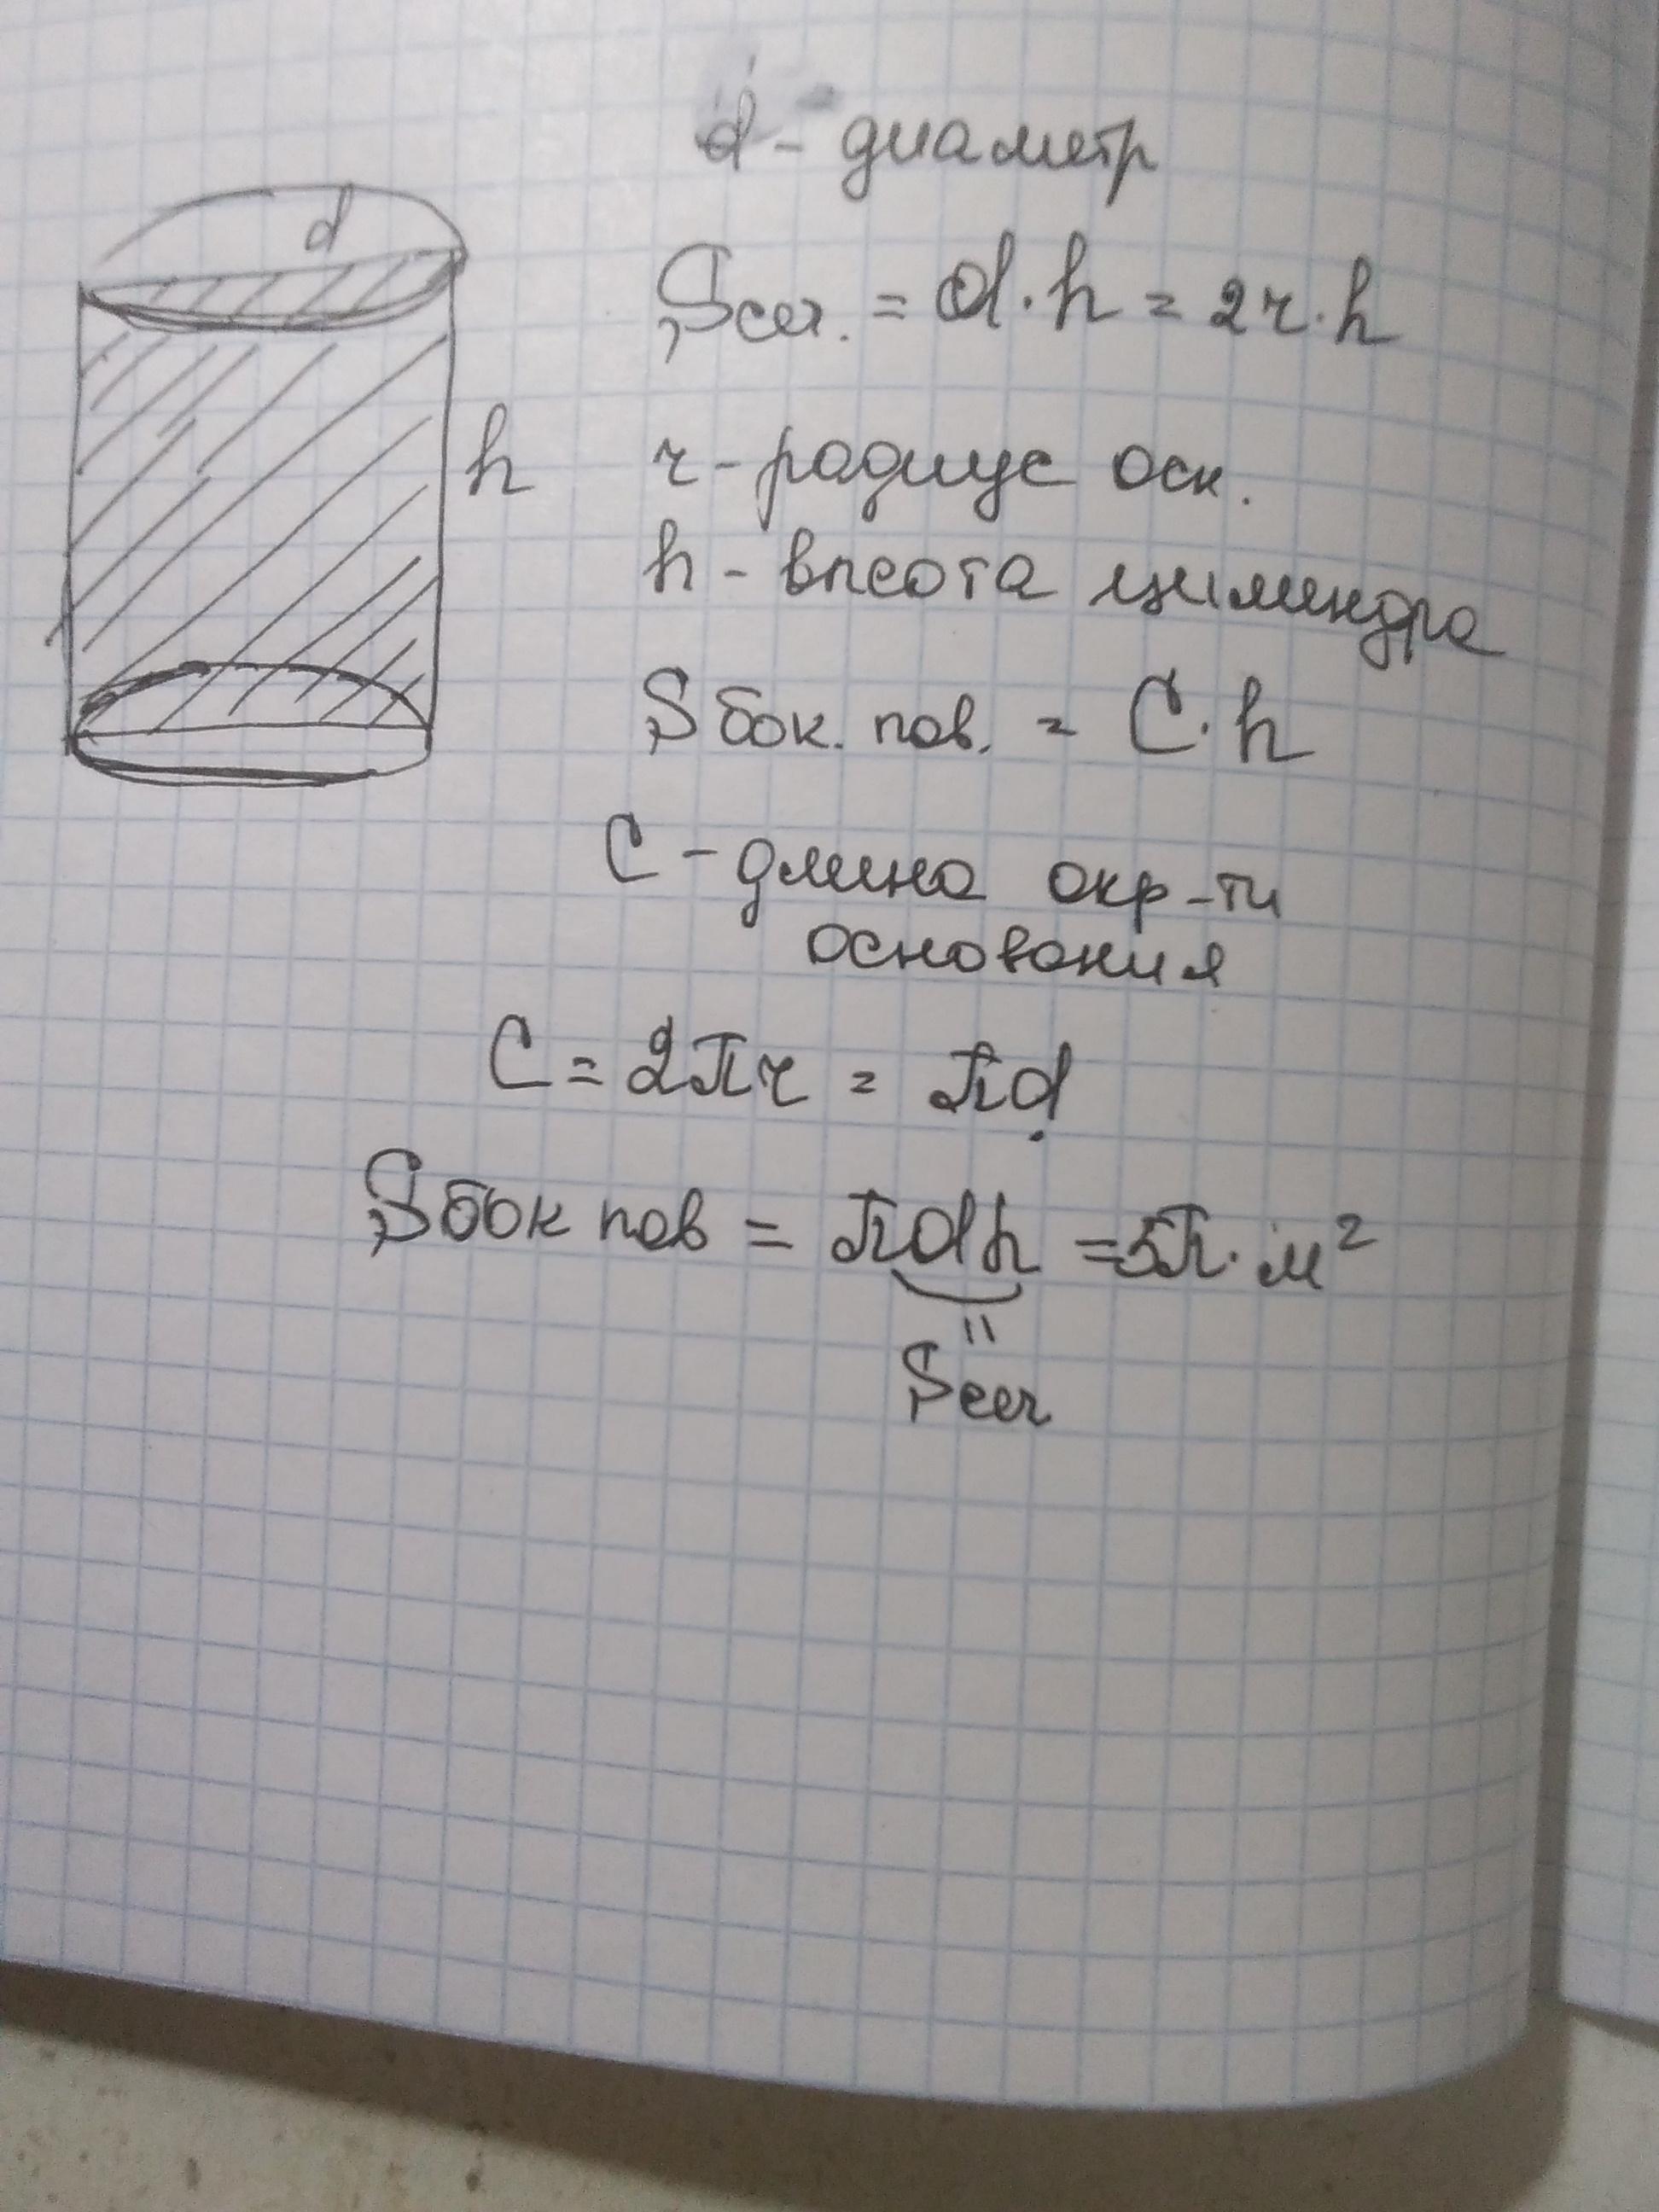 d - диаметр
d
Sсеч. = d · h = 2r · h
h
r - радиус осн.
h - высота цилиндра
S бок. пов. = C · h
C - длина окр-ти
основания
C = 2πr = πd
S бок пов = πdh = 5π · м²
=
Sсеч